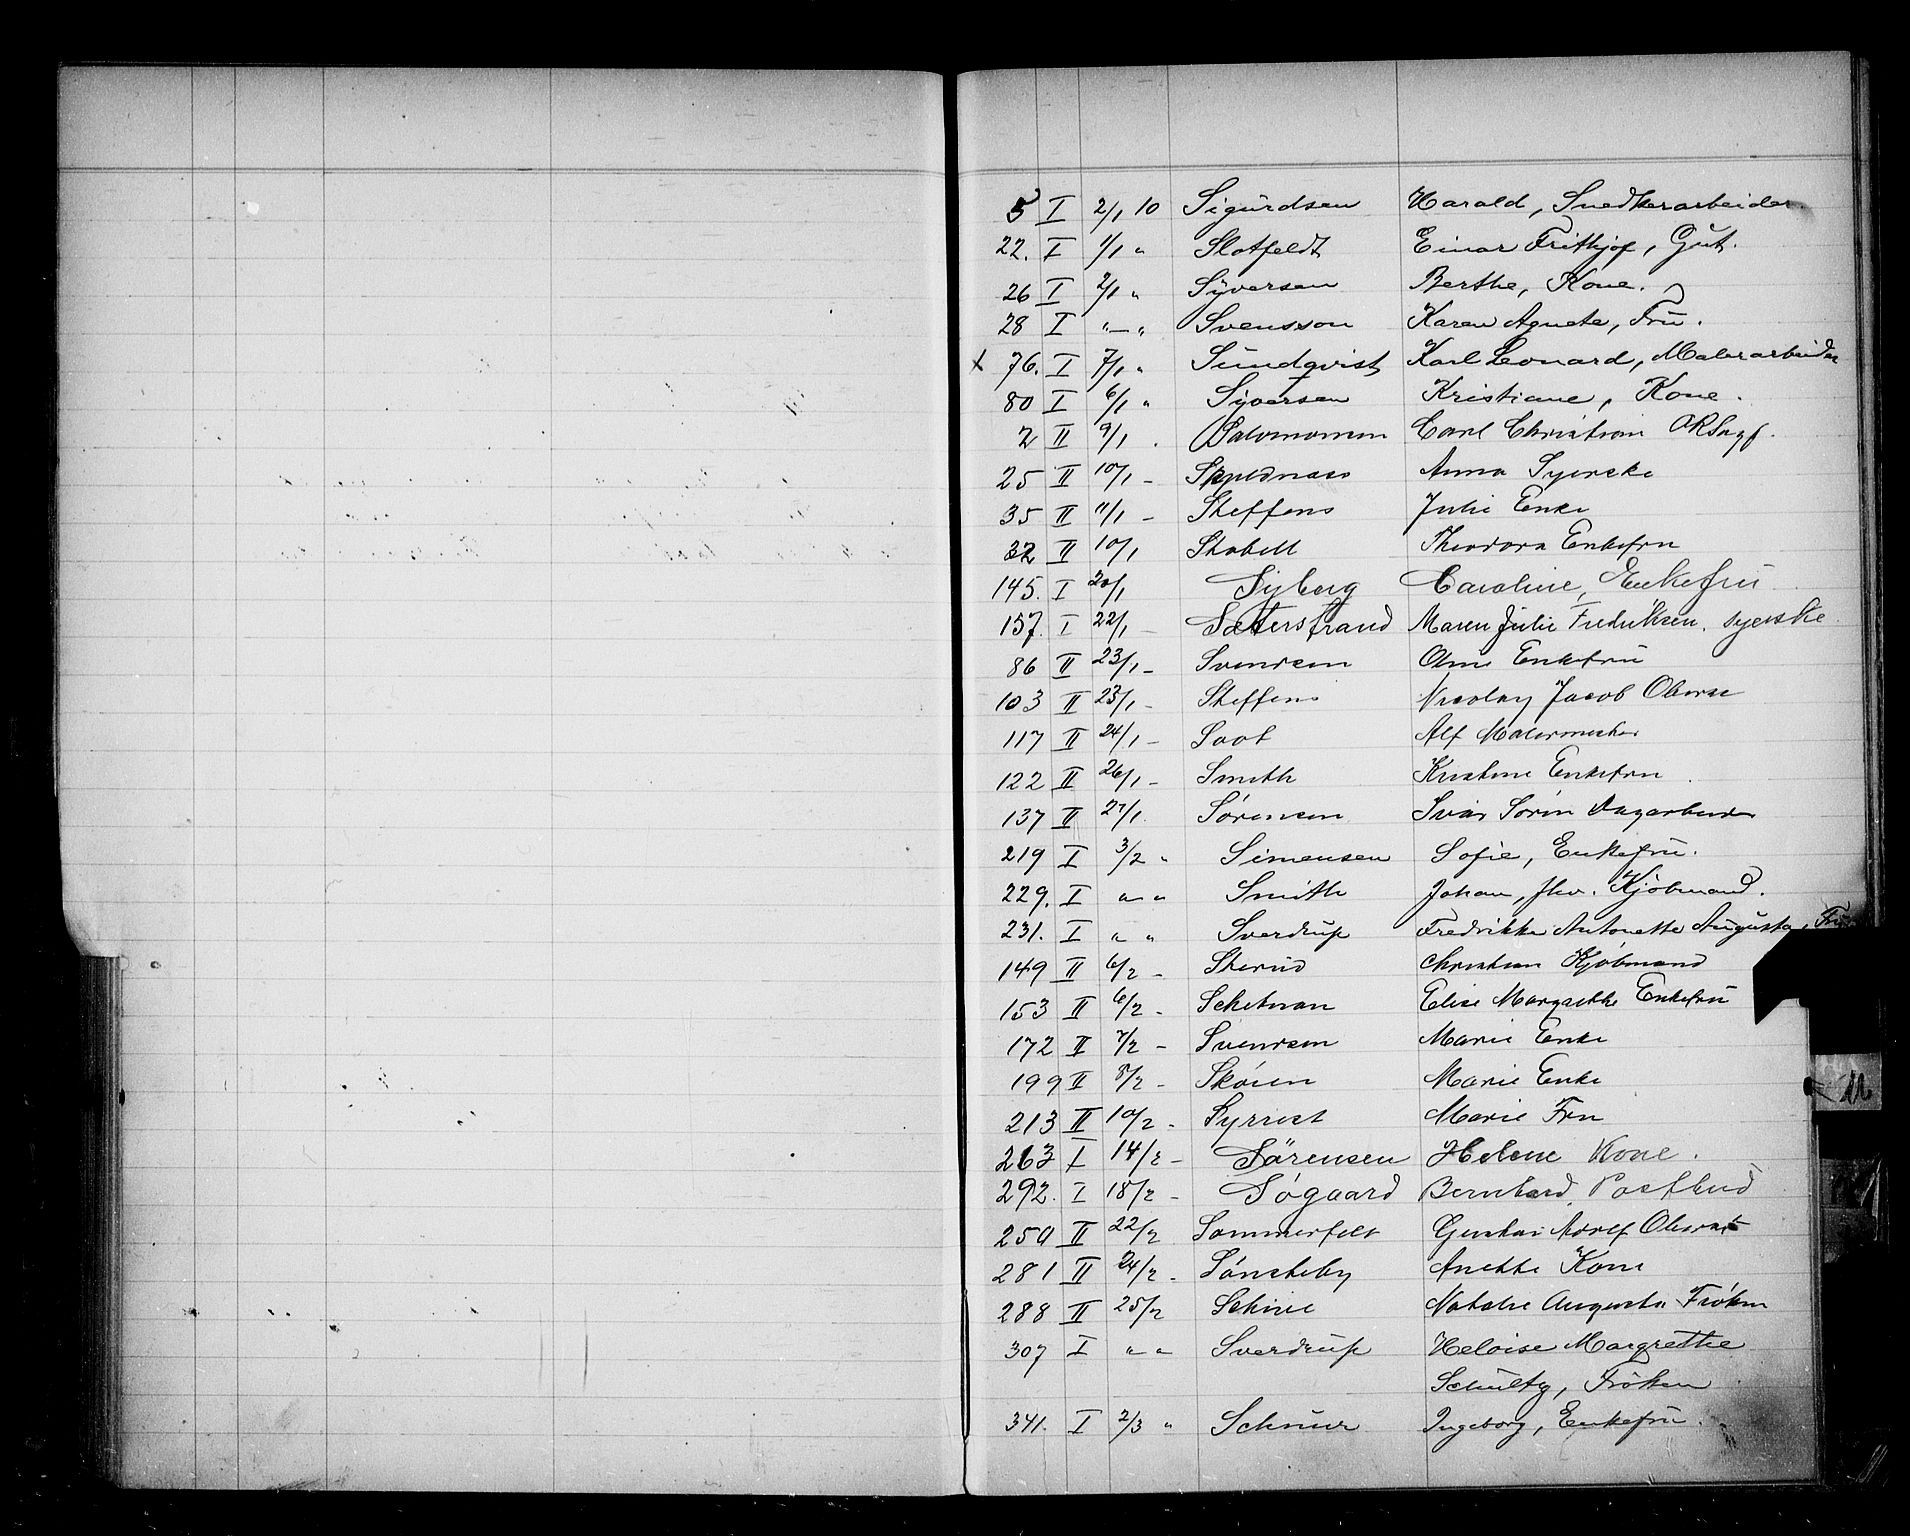 5 I 2/1 10 Sigurdsen Harald, Snedkerarbeider
22. I 1/1 " Slotfeldt Einar Frithjof, Gut.
26 I 2/1 " Syversen Berthe, Kone.
28 I "—" Svensson Karen Agnete, Fru.
x 76. I 7/1 " Sundqvist Karl Leonard, Malerarbeider
80 I 6/1 " Syversen Kristiane, Kone.
2 II 9/1 . Salomonsen Carl Christian ORSagf.
25 II 10/1 - Anna Syerske
35 II 11/1 - Steffens Julie Enke
32 II 10/1 Stabell Theodora Enkefru
145. I 20/1 Syberg Caroline, Enkefru
157. I 22/1 - Sætersfrand Maren Julie Fredriksen. syerske
86 II 23/1 - Svendsen Enkefru
103 II 23/1 - Steffens Nicolay Jacob Oberst
117 II 24/1 - Soot Alf Malermester
122 II 26/1 - Smith Kristine Enkefru
137 II 27/1 Sørensen Ivar Sørin Dagarbeider
219 I 3/2 " Simensen Sofie, Enkefru.
229. I " " Smith Johan, fhv. Kjöbmand.
231. I " " Sverdrup Fredrikke Antonette Augusta, Fru
149 II 6/2 - Christian Kjøbmand
153 II 6/2 - Schetman Elise Margrethe Enkefru
172 II 7/2 - Svendsen Marie Enke
199 II 8/2 - Skøien Marie Enke
213 II 10/2 - Marie Fru
263 I 14/2 - Sörensen Helene Kone.
292. I 18/2 - Søgaard Bernhard, Postbud
250 II 22/2 Sommerfelt Gustav Adolf Oberst
281 II 24/2 - Sønsteby Anette Kone
288 II 25/2 Schive Natalie Augusta Frøken
307 I " " Sverdrup Heloise Margrethe
Schultz, Fröken
341. I 2/3 " Ingeborg, Enkefru.